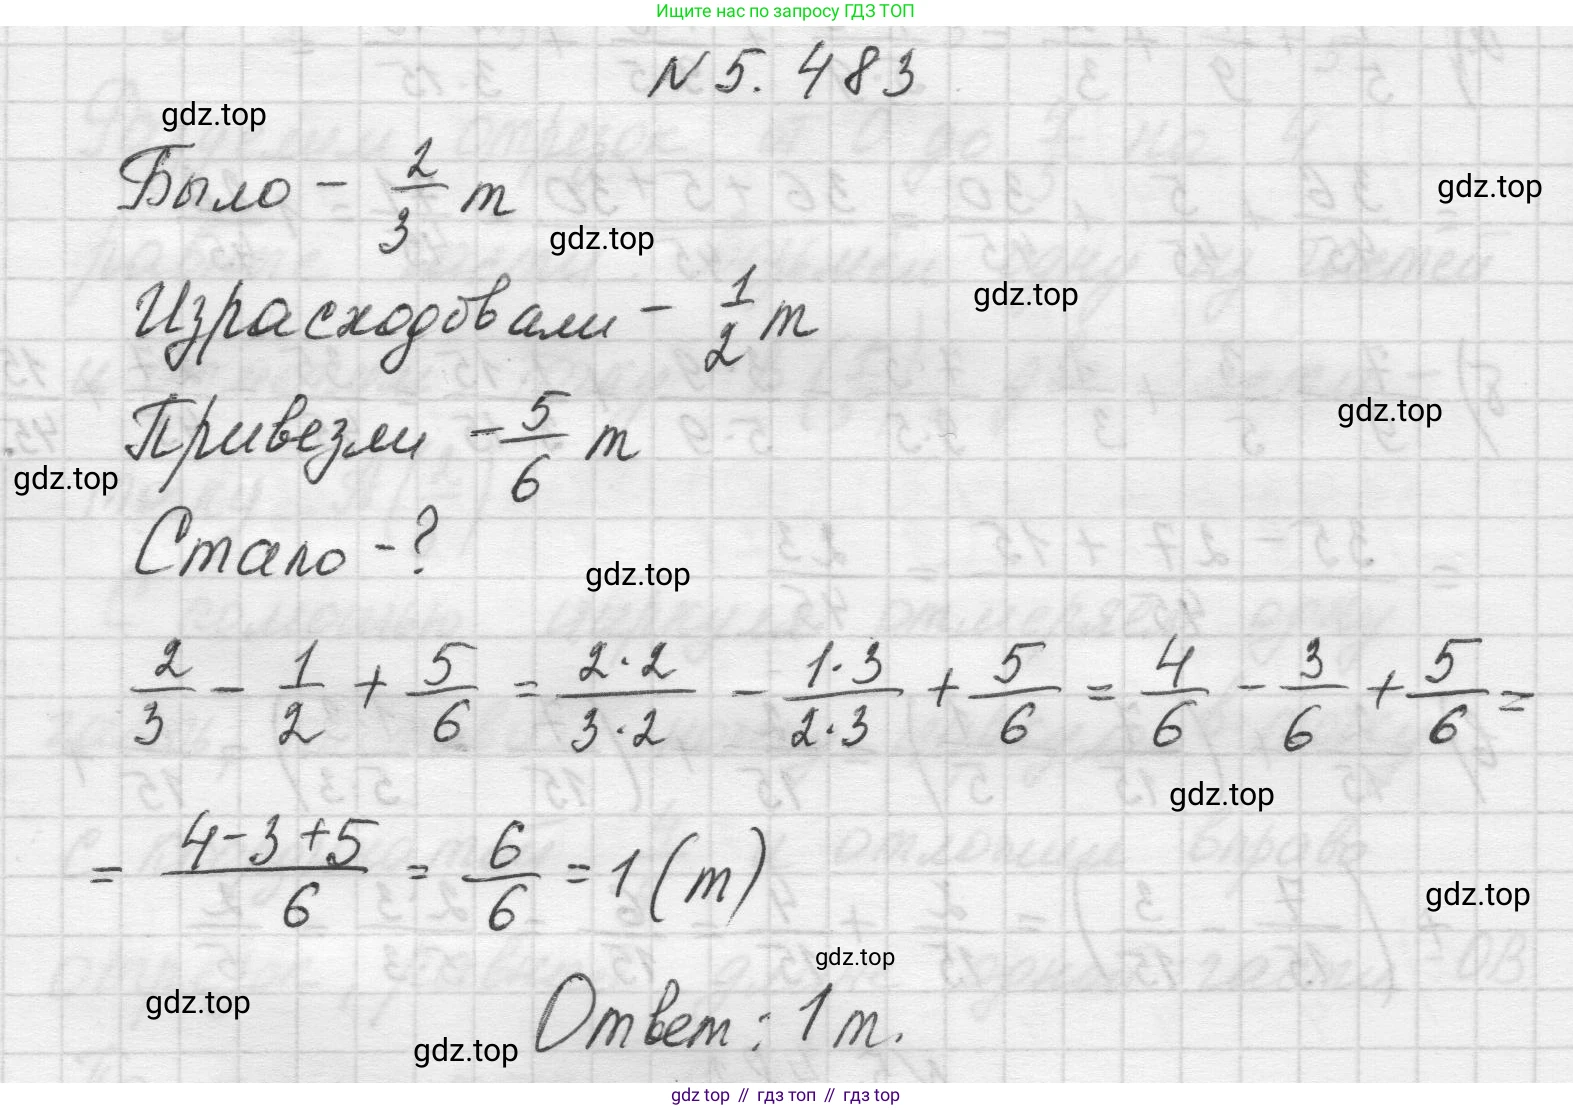 Ищите нас по запросу ГДЗ ТОП
N 5. 483
gdz.top
Было - 2/3 т
gdz.top
gdz.top
Израсходовали - 1/2 т
gdz.top
Привезли - 5/6 т
gdz.top
gdz.top
Стало - ?
gdz.top
2/3 - 1/2 + 5/6 = 2·2/3·2 - 1·3/2·3 + 5/6 = 4/6 - 3/6 + 5/6 =
gdz.top
= 4-3+5/6 = 6/6 = 1 (т)
gdz.top
gdz.top
gdz.top
Ответ: 1 т.
gdz.top
gdz top // гдз топ // gdz top